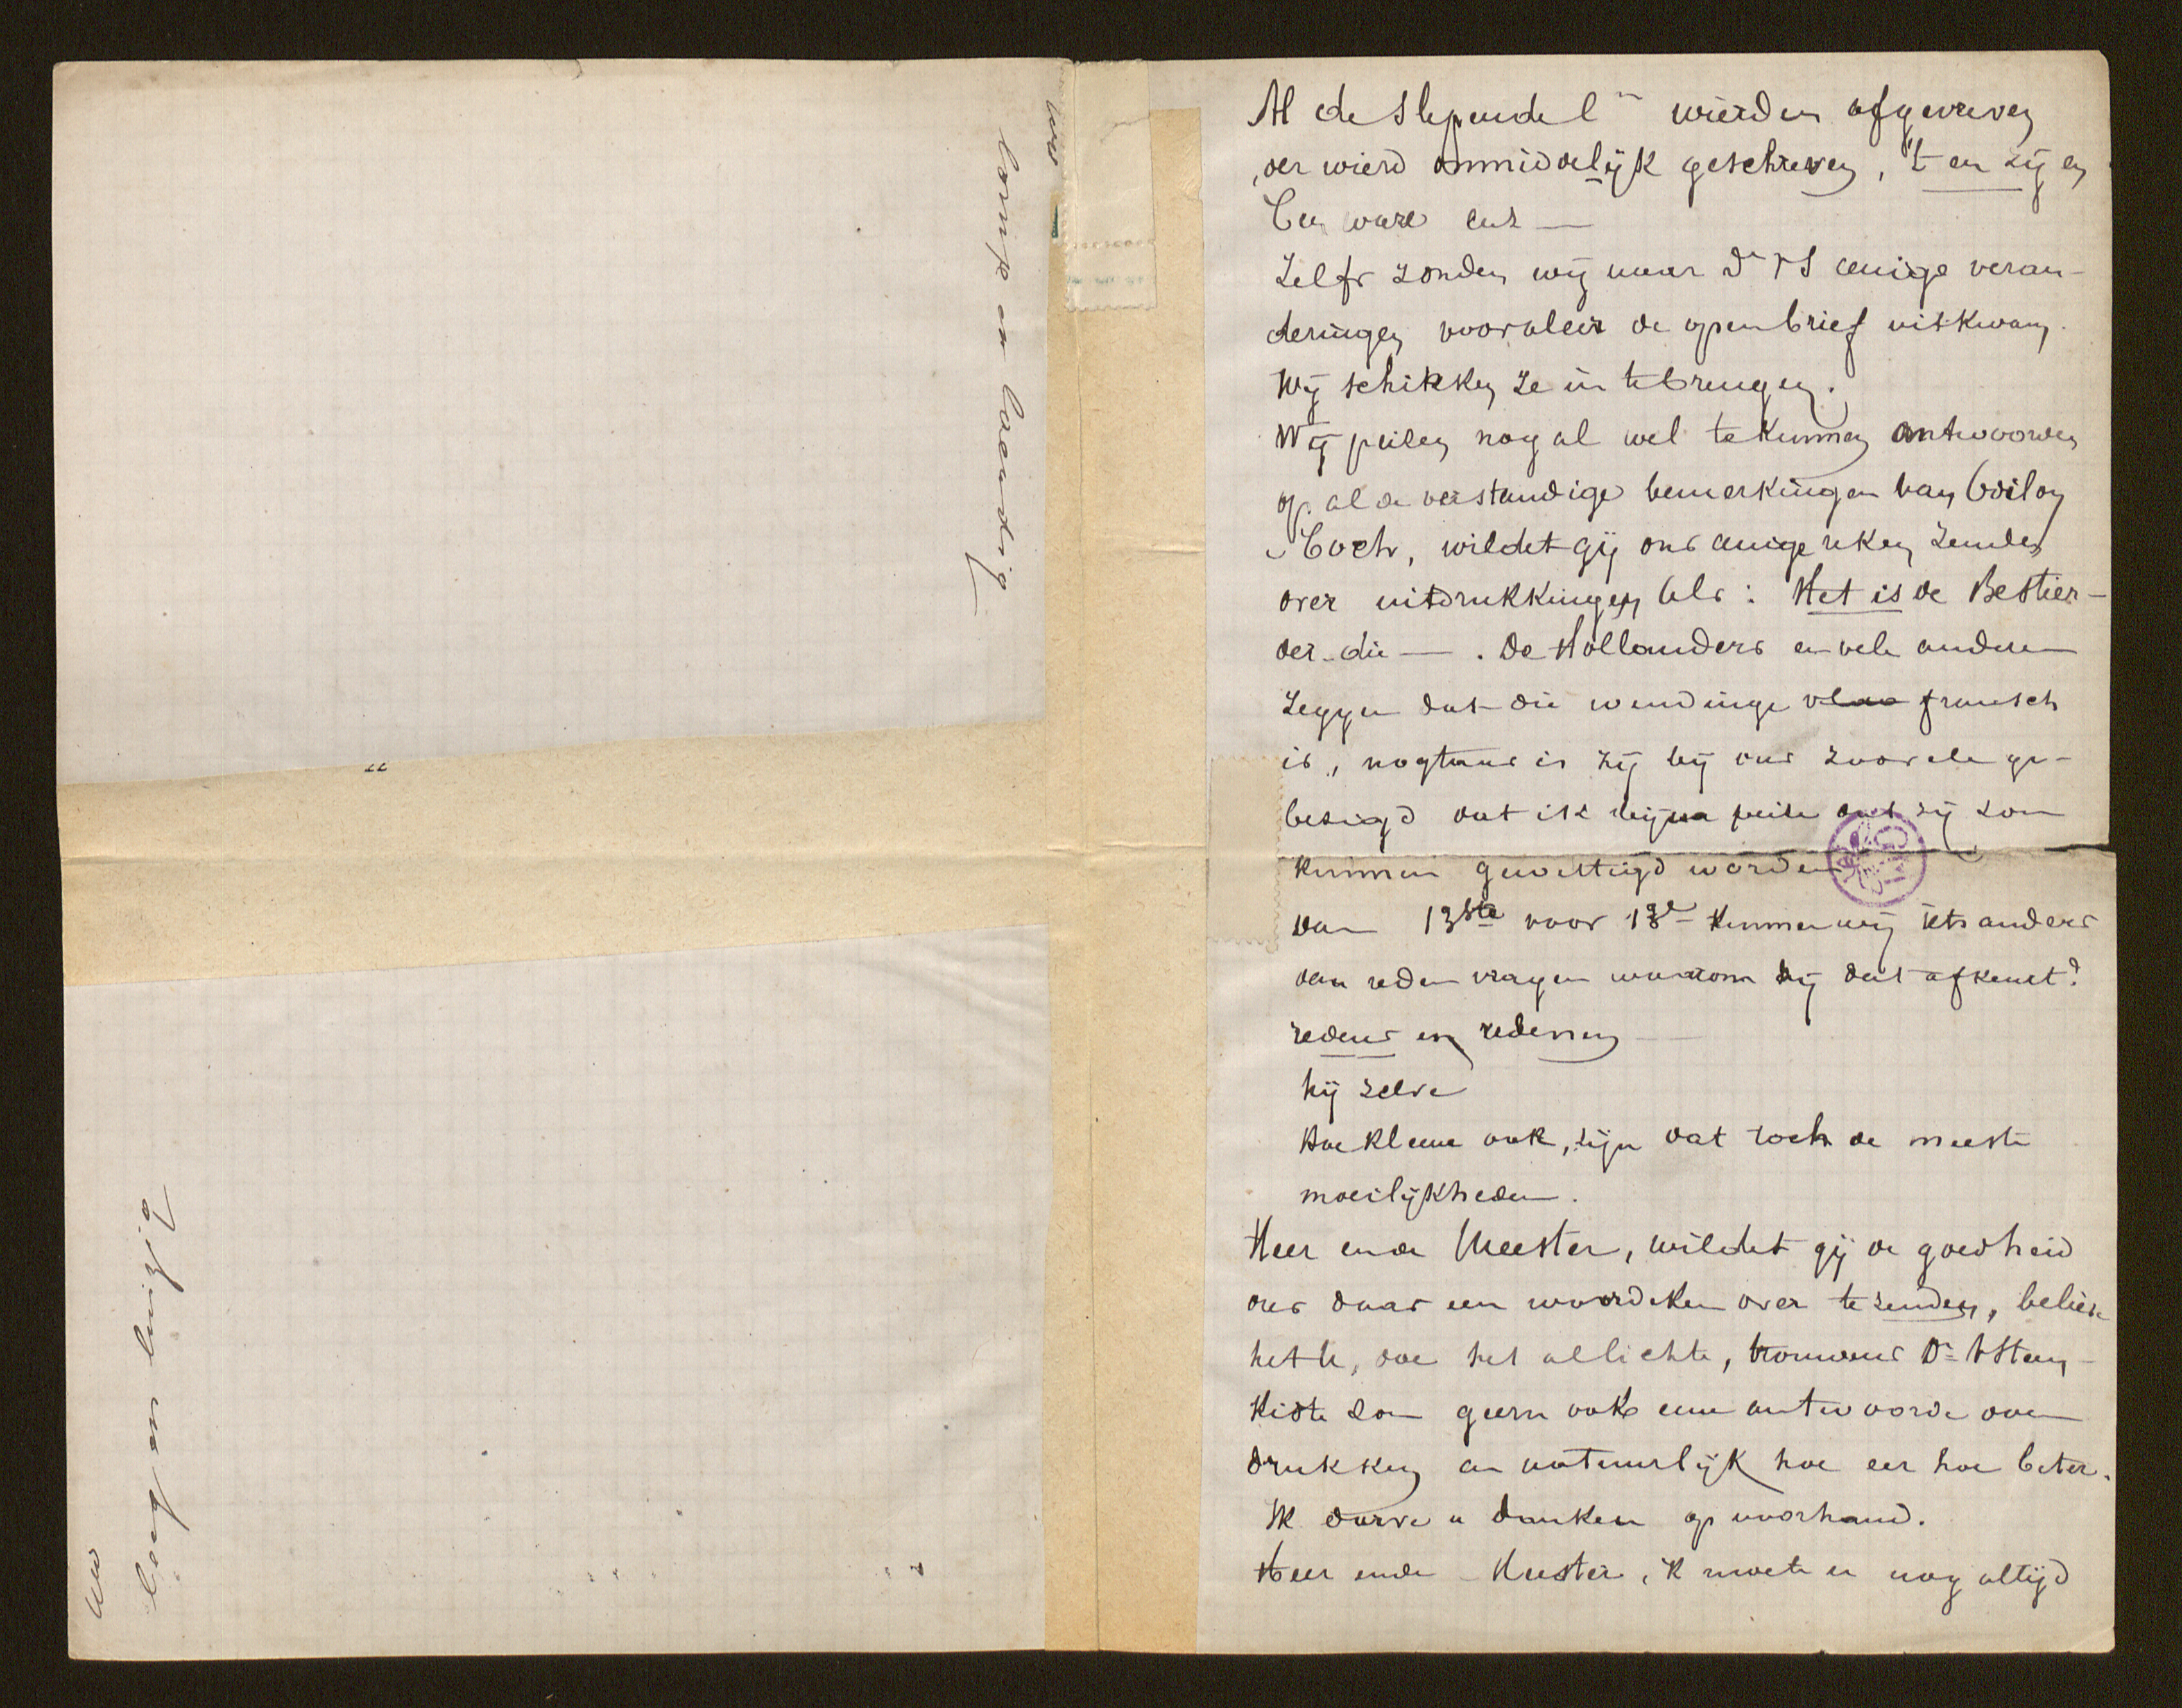 lomp en laendig
leeg en luizig
Al de slependel¨ wierden afgevreven
der wierd onmiddelijk geschreven, 't en zij en
ware enz —
Zelfs zonden wij naar Dr VS eenige veran-
deringen vooraleer de openbrief uitkwam.
Wij schikken ze in te brengen.
Wij peizen nog al wel te kunnen antwoorden
op al de verstandige bemerkingen van
Coch, wildet gij ons eenige reken zenden
over uitdrukkingen als: Het is de Bestier-
der die — . De Hollanders en vele anderen
zeggen dat die wendinge vlaa fransch
is, nogtans is zij bij ons zoovele ge-
bezigd dat ik bijna peize dat zij zou
kunnen gewettigd worden
Van 13ste voor 13e kunnen wij iets anders
dan reden vragen waarom hij dat afkeurt?
redens en redenen —
hij zelve
Hoe kleene ook, zijn dat toch de meeste
moeilijkheden.
Heer ende Meester, wildet gij de goedheid
ons daar een woordeken over te zenden, believe
het U, doe het allichte, trouwens Dr VSteen-
kiste zou geern ook eene antwoorde over
drukken en natuurlijk hoe eer hoe beter.
Ik durve u danken op voorhand.
Heer ende Meester, 'k moete u nog altijd